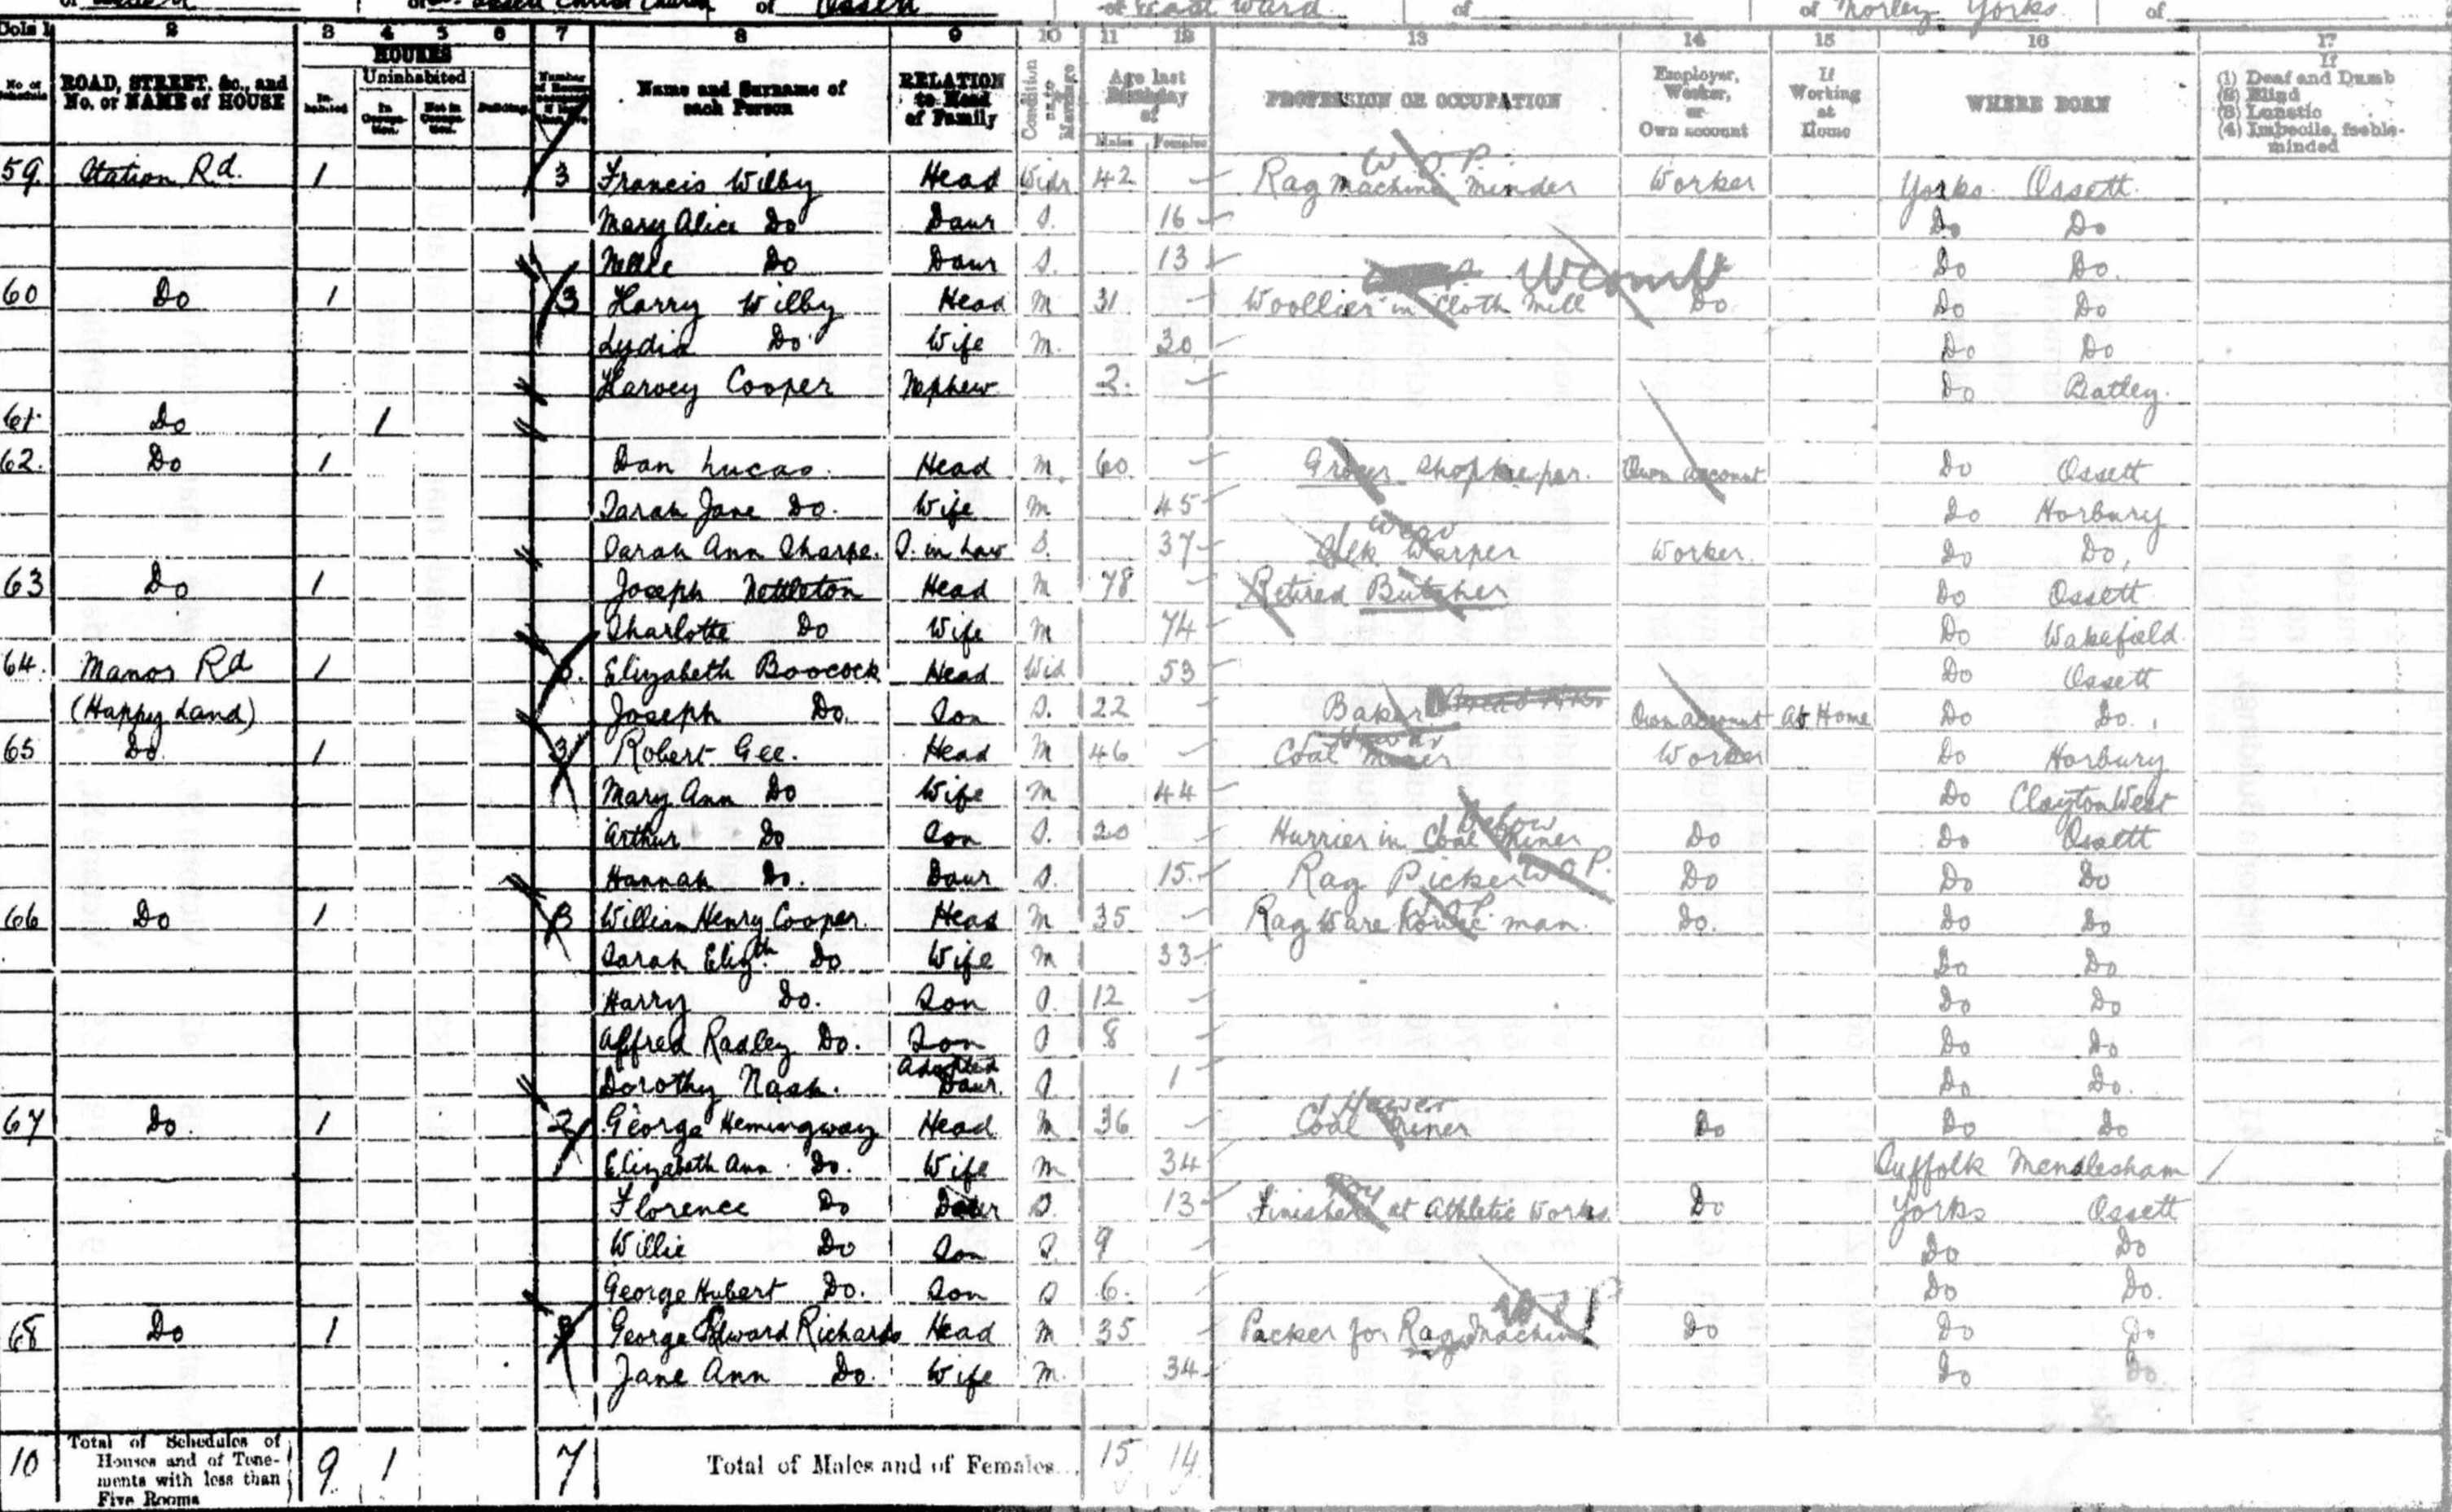 of Ossett Christ Church of Ossett of East Ward of of Morley Yorks of
Cols 1 2 3 4 5 6 7 8 9 10 11 12 13 14 15 16 17
No. of Schedule ROAD, STREET, &c., and No. or NAME of HOUSE HOUSES Inhabited Uninhabited In Occupation. Not in Occupation. Building. Name and Surname of each Person RELATION to Head of Family Condition as to Marriage Age last Birthday of Males Females PROFESSION OR OCCUPATION Employer, Worker, or Own account If Working at Home WHERE BORN If (1) Deaf and Dumb (2) Blind (3) Lunatic (4) Imbecile, feeble-minded
W.O.P.
59 Station Rd. 1 3 Francis Wilby Head Widr 42 - Rag Machine Minder Worker Yorks Ossett.
Mary Alice Do Daur S. 16 Do Do
Nellie Do Daur S. 13 Do Do.
60 Do 1 3 Harry Wilby Head M 31 - Woollier in Cloth Mill Do Do Do
Lydia Do Wife M. 30 Do Do
Harvey Cooper Nephew 2. - Do Batley.
61 Do 1
62. Do 1 Dan Lucas. Head M. 60 - Grocer Shopkeeper. Own account Do Ossett
Sarah Jane Do. Wife M 45 Do Horbury
Sarah Ann Sharpe. S. in Law S. 37 Silk Warper Worker. Do Do,
63 Do 1 Joseph Nettleton Head M 78 - Retired Butcher Do Ossett
Charlotte Do Wife M 74 Do Wakefield.
64. Manor Rd 1 Elizabeth Boocock Head Wid 53 Do Ossett
(Happy Land) Joseph Do. Son S. 22 Baker Own account At Home Do Do.
Hewer
65 Do 1 3 Robert Gee. Head M 46 - Coal Miner Worker Do Horbury
Mary Ann Do Wife M 44 Do Clayton West
below
Arthur Do Son S. 20 - Hurrier in Coal Miner Do Do Ossett
Hannah Do. Daur S. 15. Rag Picker W.O.P. Do Do Do
66 Do 1 3 William Henry Cooper. Head M 35 - Rag Ware house man. Do. Do Do
Sarah Elizth Do Wife M 33 Do Do
Harry Do. Son S. 12 - Do Do
Alfred Radley Do. Son S 8 - Do Do
Dorothy Nash. Adopted Daur. S. 1 Do Do.
Hewer
67 Do. 1 2 George Hemingway Head M 36 - Coal Miner Do Do Do
Elizabeth Ann Do. Wife M 34 Suffolk Mendlesham
Florence Do Daur S. 13 Finisher at Athletic Works. Do Yorks Ossett
Willie Do Son S. 9 - Do Do
George Hubert Do. Son S 6. - Do Do.
68 Do 1 3 George Edward Richards Head M 35 - Packer for Rag Machine Do Do Do
Jane Ann Do. Wife M. 34 Do Do.
10 Total of Schedules of Houses and of Tenements with less than Five Rooms 9 1 7 Total of Males and of Females... 15 14